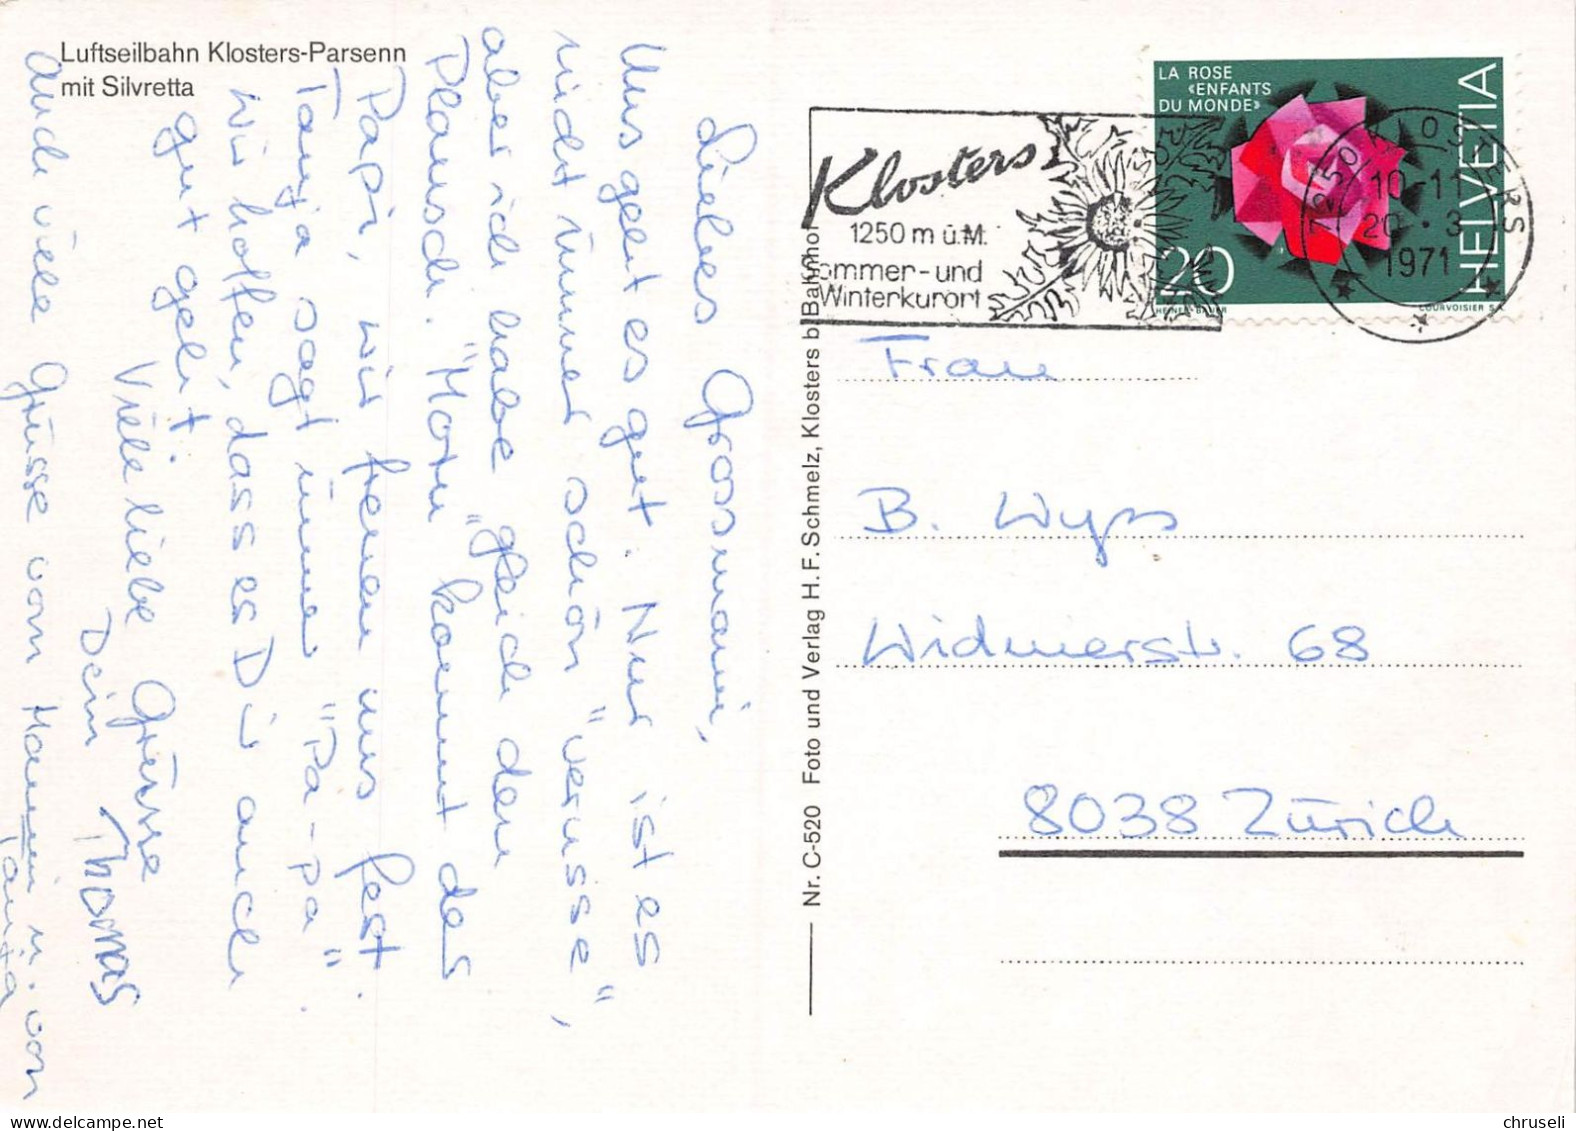 Luftseilbahn Klosters-Parsenn
mit Silvretta
Liebes Grossmami,
Uns geht es gut. Nur ist es
nicht immer schön "verusse",
aber ich habe "gleich den
Plausch. "Morn" kommt der
Papi, wir freuen uns fest.
Tanja sagt immer "Pa-pa".
Wir hoffen, dass es Dir auch
gut geht.
Viele liebe Grüsse
Dein Thomas
Auch viele Grüsse vom Mammi u. von
Tanja
Nr. C-520 Foto und Verlag H. F. Schmelz, Klosters b. Bahnhof
Klosters
1250 m ü. M.
ommer- und
Winterkurort
LA ROSE
«ENFANTS
DU MONDE»
HELVETIA
20
HEINER BAUER
COURVOISIER S.A.
7250 KLOSTERS
10-11
20.-3
1971
Frau
B. Wyss
Widmerstr. 68
8038 Zürich
chruseli